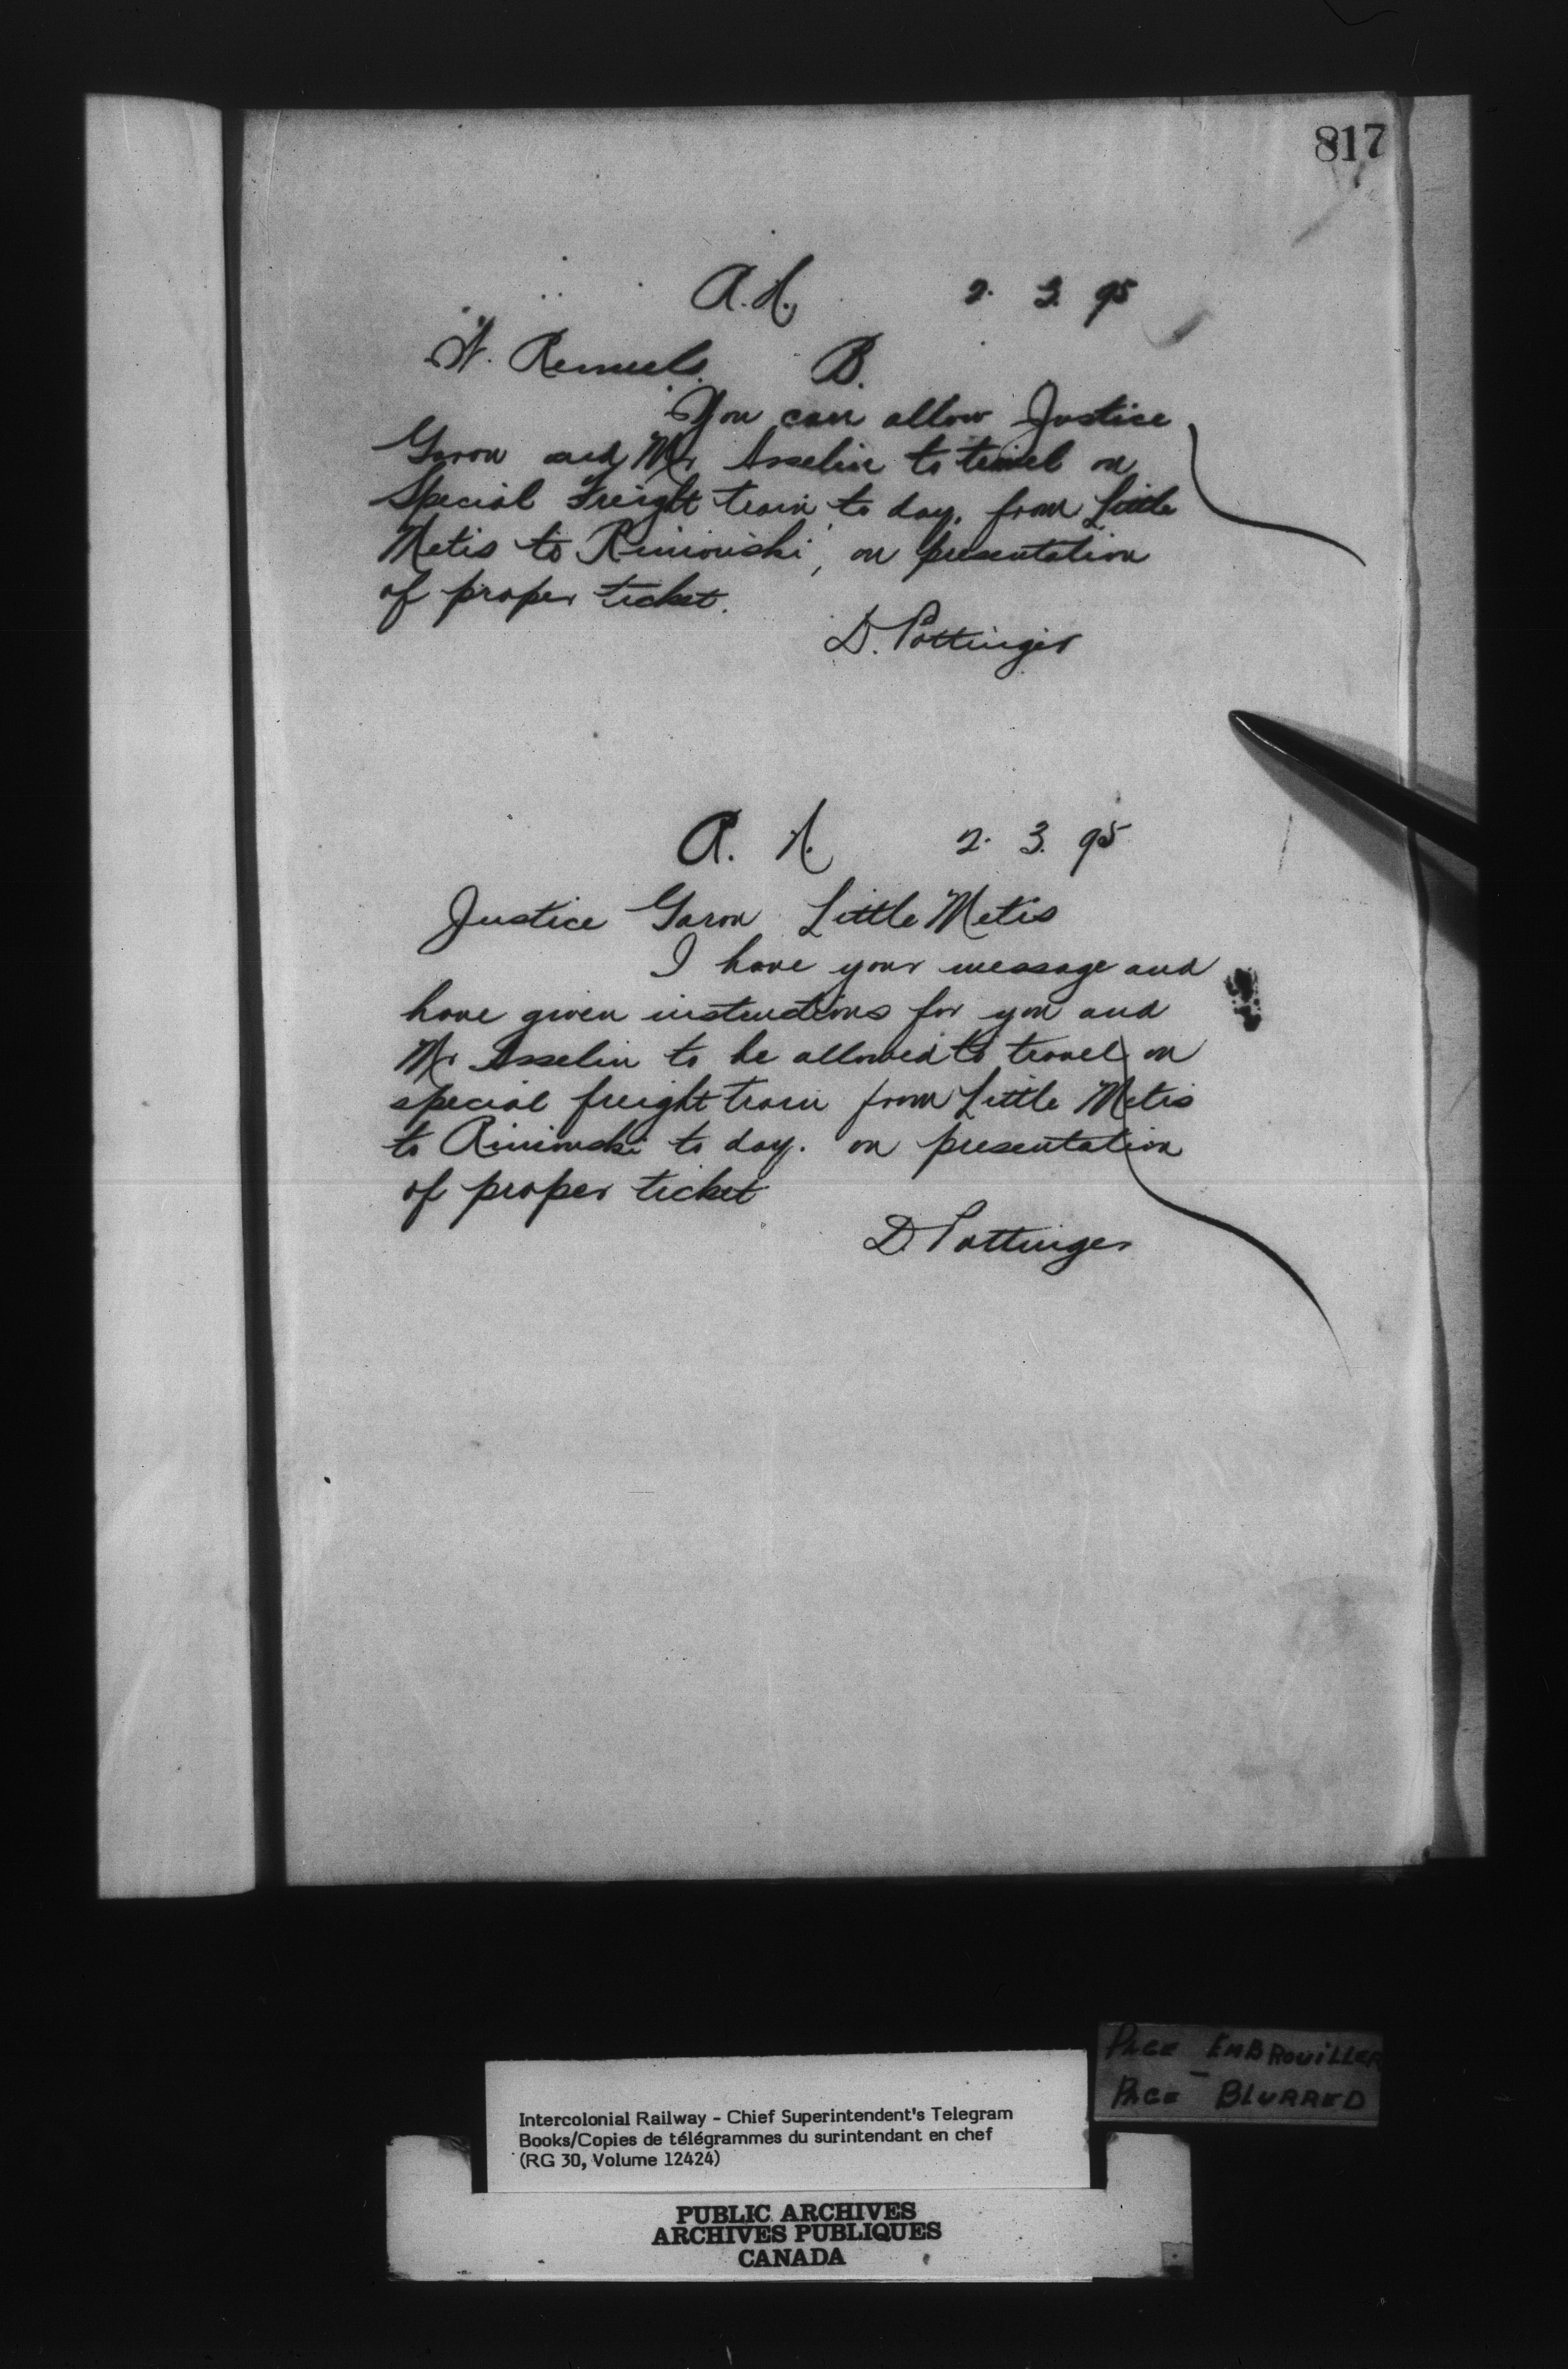 817
2. 3. 95
B.
You can allow Justice
Garon and Mr Asselin to travel on
Special Freight train to day. from Little
Metis to Rimouski, on presentation
of proper ticket.
D. Pottinger
2. 3. 95
Justice Garon Little Metis
I have your message and
have given instructions for you and
Mr Asselin to be allowed to travel on
special freight train from Little Metis
to Rimouski to day. on presentation
of proper ticket
D. Pottinger
PAGE EMBROUILLER
PAGE - BLURRED
Intercolonial Railway - Chief Superintendent's Telegram
Books/Copies de télégrammes du surintendant en chef
(RG 30, Volume 12424)
PUBLIC ARCHIVES
ARCHIVES PUBLIQUES
CANADA